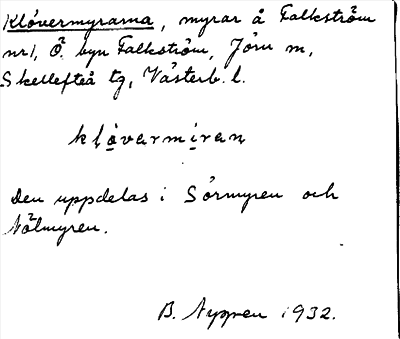 Klövermyrarna, myrar å Falkström
nr 1, Ö. byn Falkström, Jörn sn,
Skellefteå tg, Västerb. l.
klövarmiran
Den uppdelas i Sörmyren och
Nölmyren.
B. Nygren 1932.